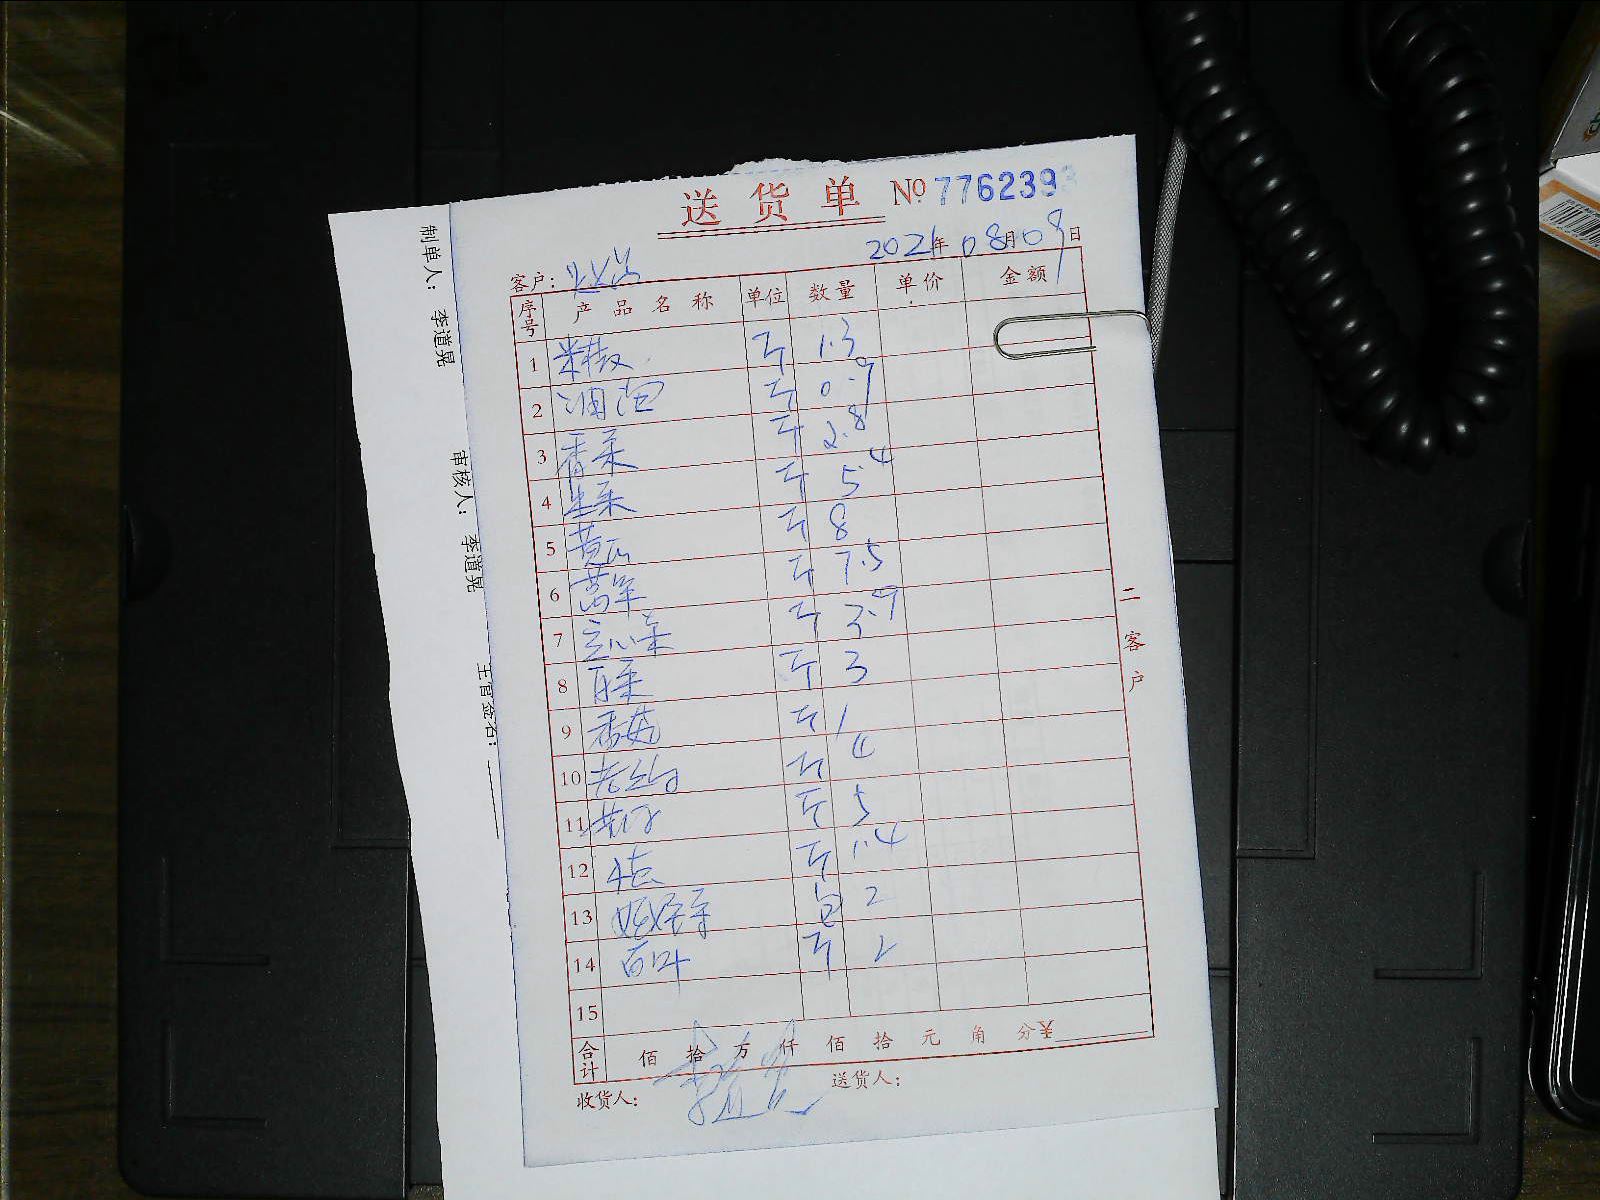 送货单 № 7762393
2021年08月09日
客户：
序号 产品名称 单位 数量 单价 金额
1 米椒 斤 1.3
2 斤 0.9
3 香菜 斤 2.8
4 生菜 斤 5.4
5 黄瓜 斤 8
6 莴笋 斤 7.5
7 空心菜 斤 3.9
8 白菜 斤 3
9 香菇 斤 1
10 斤 4
11 斤 5
12 斤 1.4
13 包 2
14 百叶 斤 2
15
合计 佰 拾 万 仟 佰 拾 元 角 分 ¥
收货人： 送货人：
二客户
制单人： 李道晃
审核人： 李道晃
主官签名：